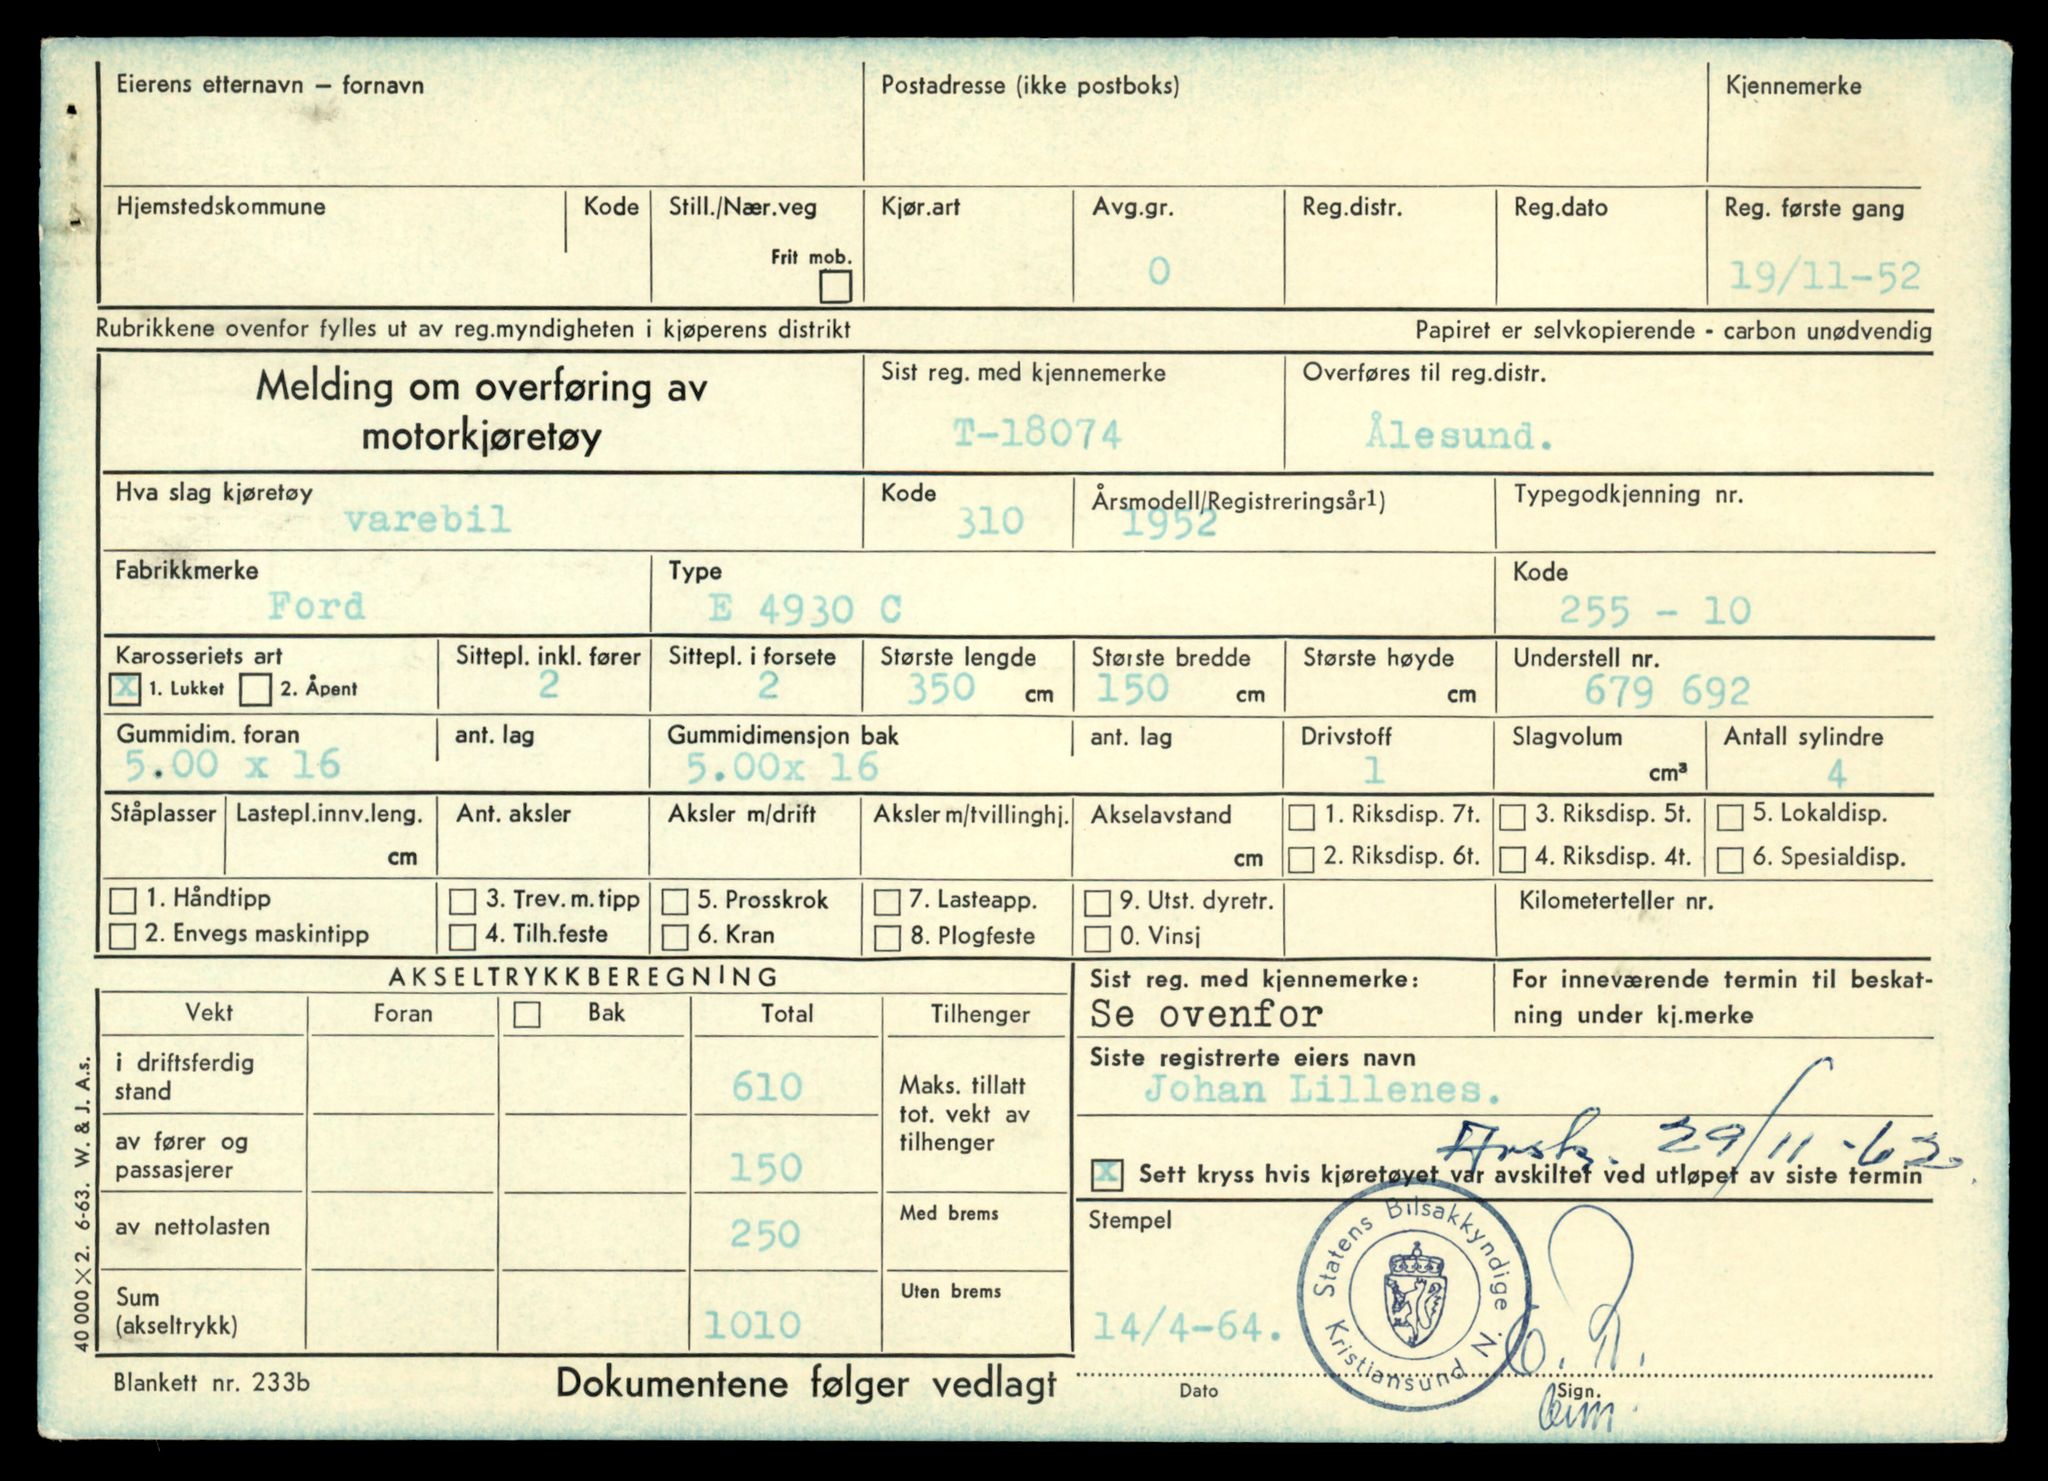 Eierens etternavn – fornavn
Postadresse (ikke postboks)
Kjennemerke
Hjemstedskommune
Kode
Still./Nær.veg
Frit mob.
Kjør.art
Avg.gr.
0
Reg.distr.
Reg.dato
Reg. første gang
19/11-52
Rubrikkene ovenfor fylles ut av reg.myndigheten i kjøperens distrikt
Papiret er selvkopierende - carbon unødvendig
Melding om overføring av
motorkjøretøy
Sist reg. med kjennemerke
T-18074
Overføres til reg.distr.
Ålesund.
Hva slag kjøretøy
varebil
Kode
310
Årsmodell/Registreringsår1)
1952
Typegodkjenning nr.
Fabrikkmerke
Ford
Type
E 4930 C
Kode
255 - 10
Karosseriets art
X 1. Lukket 2. Åpent
Sittepl. inkl. fører
2
Sittepl. i forsete
2
Største lengde
350 cm
Største bredde
150 cm
Største høyde
cm
Understell nr.
679 692
Gummidim. foran
5.00 x 16
ant. lag
Gummidimensjon bak
5.00x 16
ant. lag
Drivstoff
1
Slagvolum
cm³
Antall sylindre
4
Ståplasser
Lastepl.innv.leng.
cm
Ant. aksler
Aksler m/drift
Aksler m/tvillinghj.
Akselavstand
cm
1. Riksdisp. 7t.
2. Riksdisp. 6t.
3. Riksdisp. 5t.
4. Riksdisp. 4t.
5. Lokaldisp.
6. Spesialdisp.
1. Håndtipp
2. Envegs maskintipp
3. Trev. m. tipp
4. Tilh.feste
5. Prosskrok
6. Kran
7. Lasteapp.
8. Plogfeste
9. Utst. dyretr.
0. Vinsj
Kilometerteller nr.
AKSELTRYKKBEREGNING
Vekt
Foran
Bak
Total
Tilhenger
i driftsferdig
stand
610
av fører og
passasjerer
150
av nettolasten
250
Sum
(akseltrykk)
1010
Maks. tillatt
tot. vekt av
tilhenger
Med brems
Uten brems
Sist reg. med kjennemerke:
Se ovenfor
For inneværende termin til beskat-
ning under kj.merke
Siste registrerte eiers navn
Johan Lillenes.
29/11-63.
X Sett kryss hvis kjøretøyet var avskiltet ved utløpet av siste termin
Stempel
Statens Bilsakkyndige
Kristiansund N.
14/4-64.
Dato
Sign.
40 000 × 2. 6-63. W. & J. A.s.
Blankett nr. 233b
Dokumentene følger vedlagt